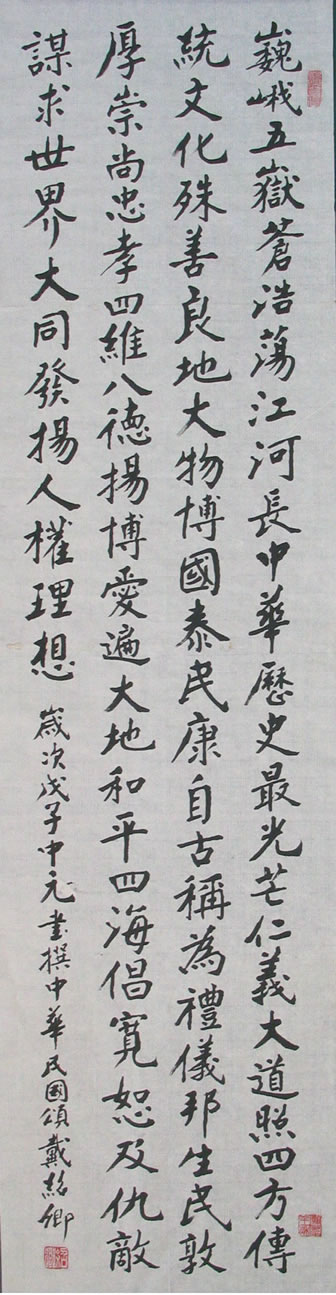 巍峨五嶽蒼浩蕩江河長中華歷史最光芒仁義大道照四方傳
統文化殊善良地大物博國泰民康自古稱為禮儀邦生民敦
厚崇尚忠孝四維八德揚博愛遍大地和平四海倡寬恕及仇敵
謀求世界大同發揚人權理想
歲次戊子中元書撰中華民國頌戴紹卿